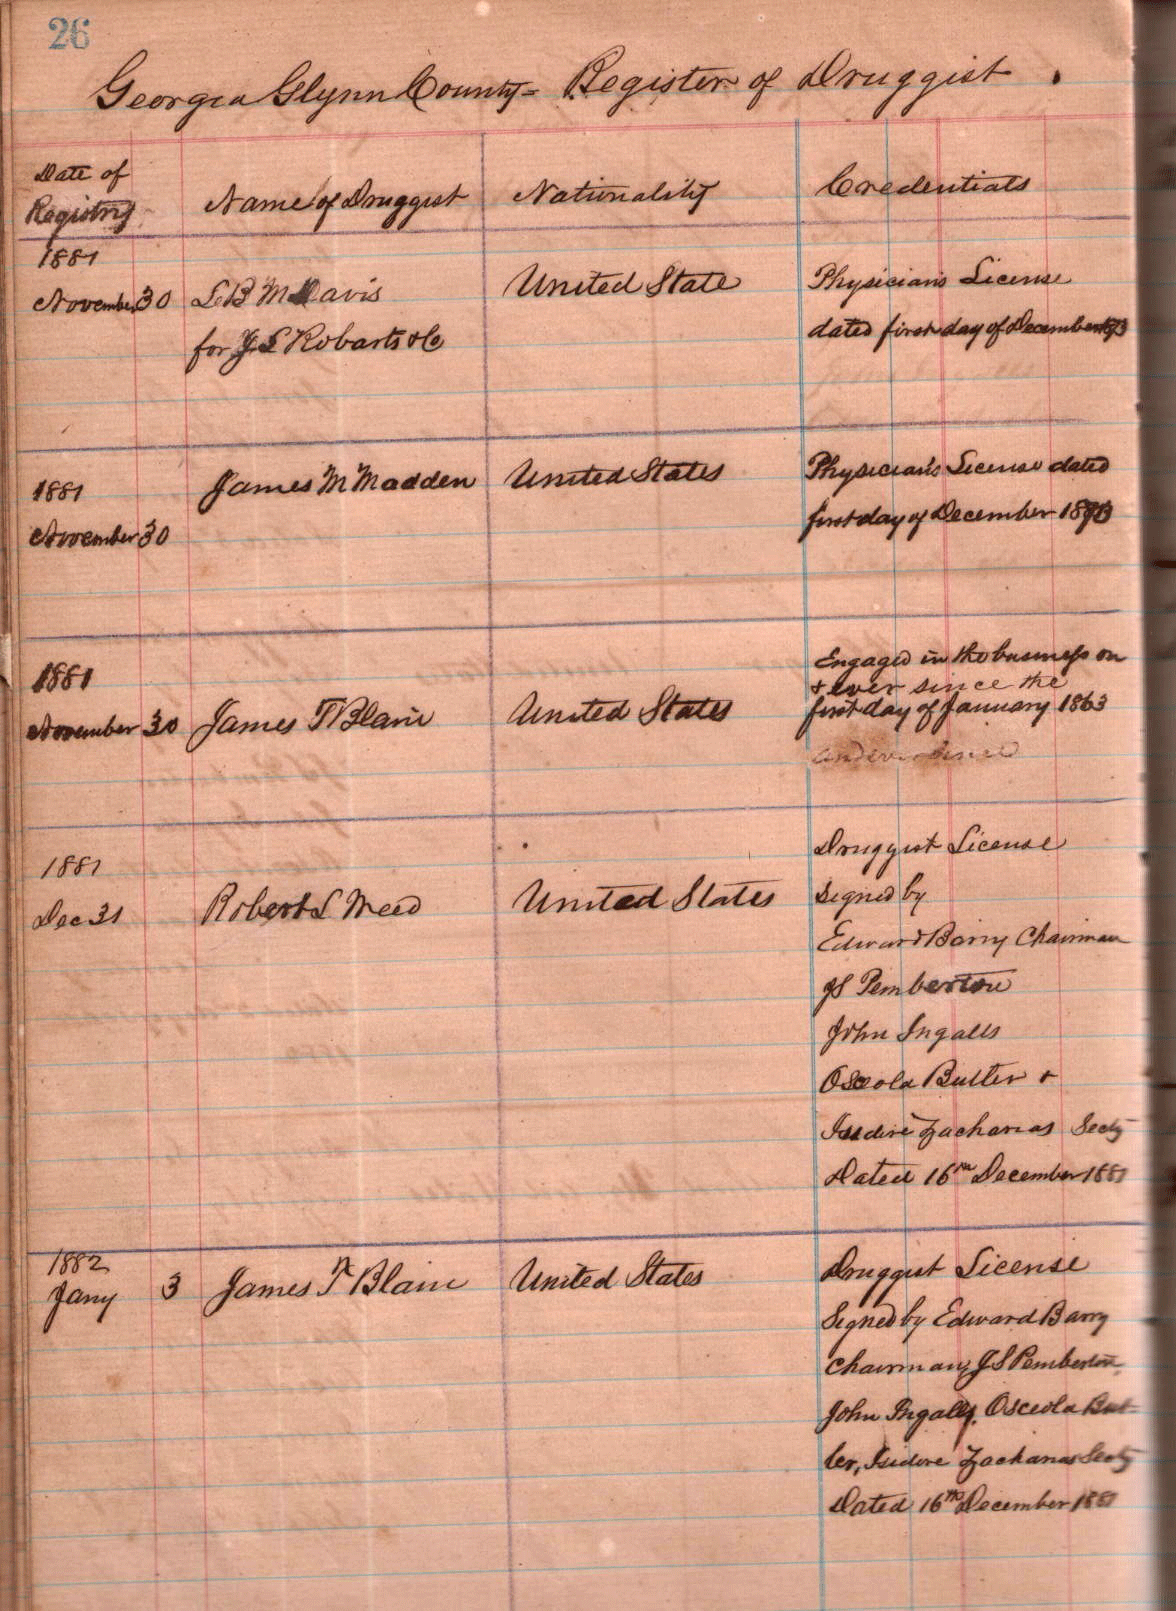 26
Georgia Glynn County - Register of Druggist .
Date of
Registry
Name of Druggist
Nationality
Credentials
1881
November 30
L B M Davis
United State
Physician's License
for J. L Robarts & Co
dated first day of December
1881
November 30
James M Madden
United States
Physician's License dated
first day of December
1881
November 30
James T Blain
United States
Engaged in the business on
& ever since the
first day of January 1863
1881
Dec 31
Robert L Weed
United States
Druggist License
signed by
Edward Barry Chairman
JS Pemberton
John Ingalls
Osceola Butler &
Isidire Zacharias Secty
Dated 16th December 1881
1882
Jany 3
James T Blain
United States
Druggist License
Signed by Edward Barry
Chairman, JS Pemberton,
John Ingalls, Osceola But-
ler, Isidore Zacharias Secty
Dated 16th December 1881